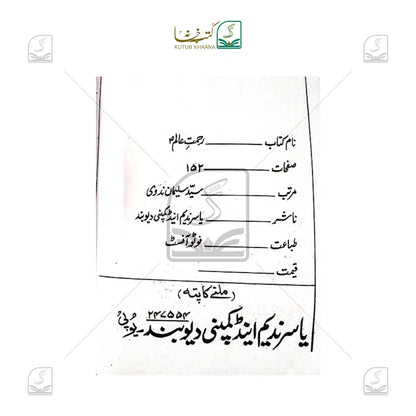 کتب خانہ
KUTUB KHAANA
نام کتاب ــــــ رحمت عالمؐ
صفحات ــــــ ۱۵۲
مرتب ــــــ سید سلیمان ندوی
ناشر ــــــ یاسر ندیم اینڈ کمپنی دیوبند
طباعت ــــــ فوٹو آفسٹ
قیمت ــــــ
(ملنے کا پتہ)
یاسر ندیم اینڈ کمپنی دیوبند ۲۴۷۵۵۴ یوپی